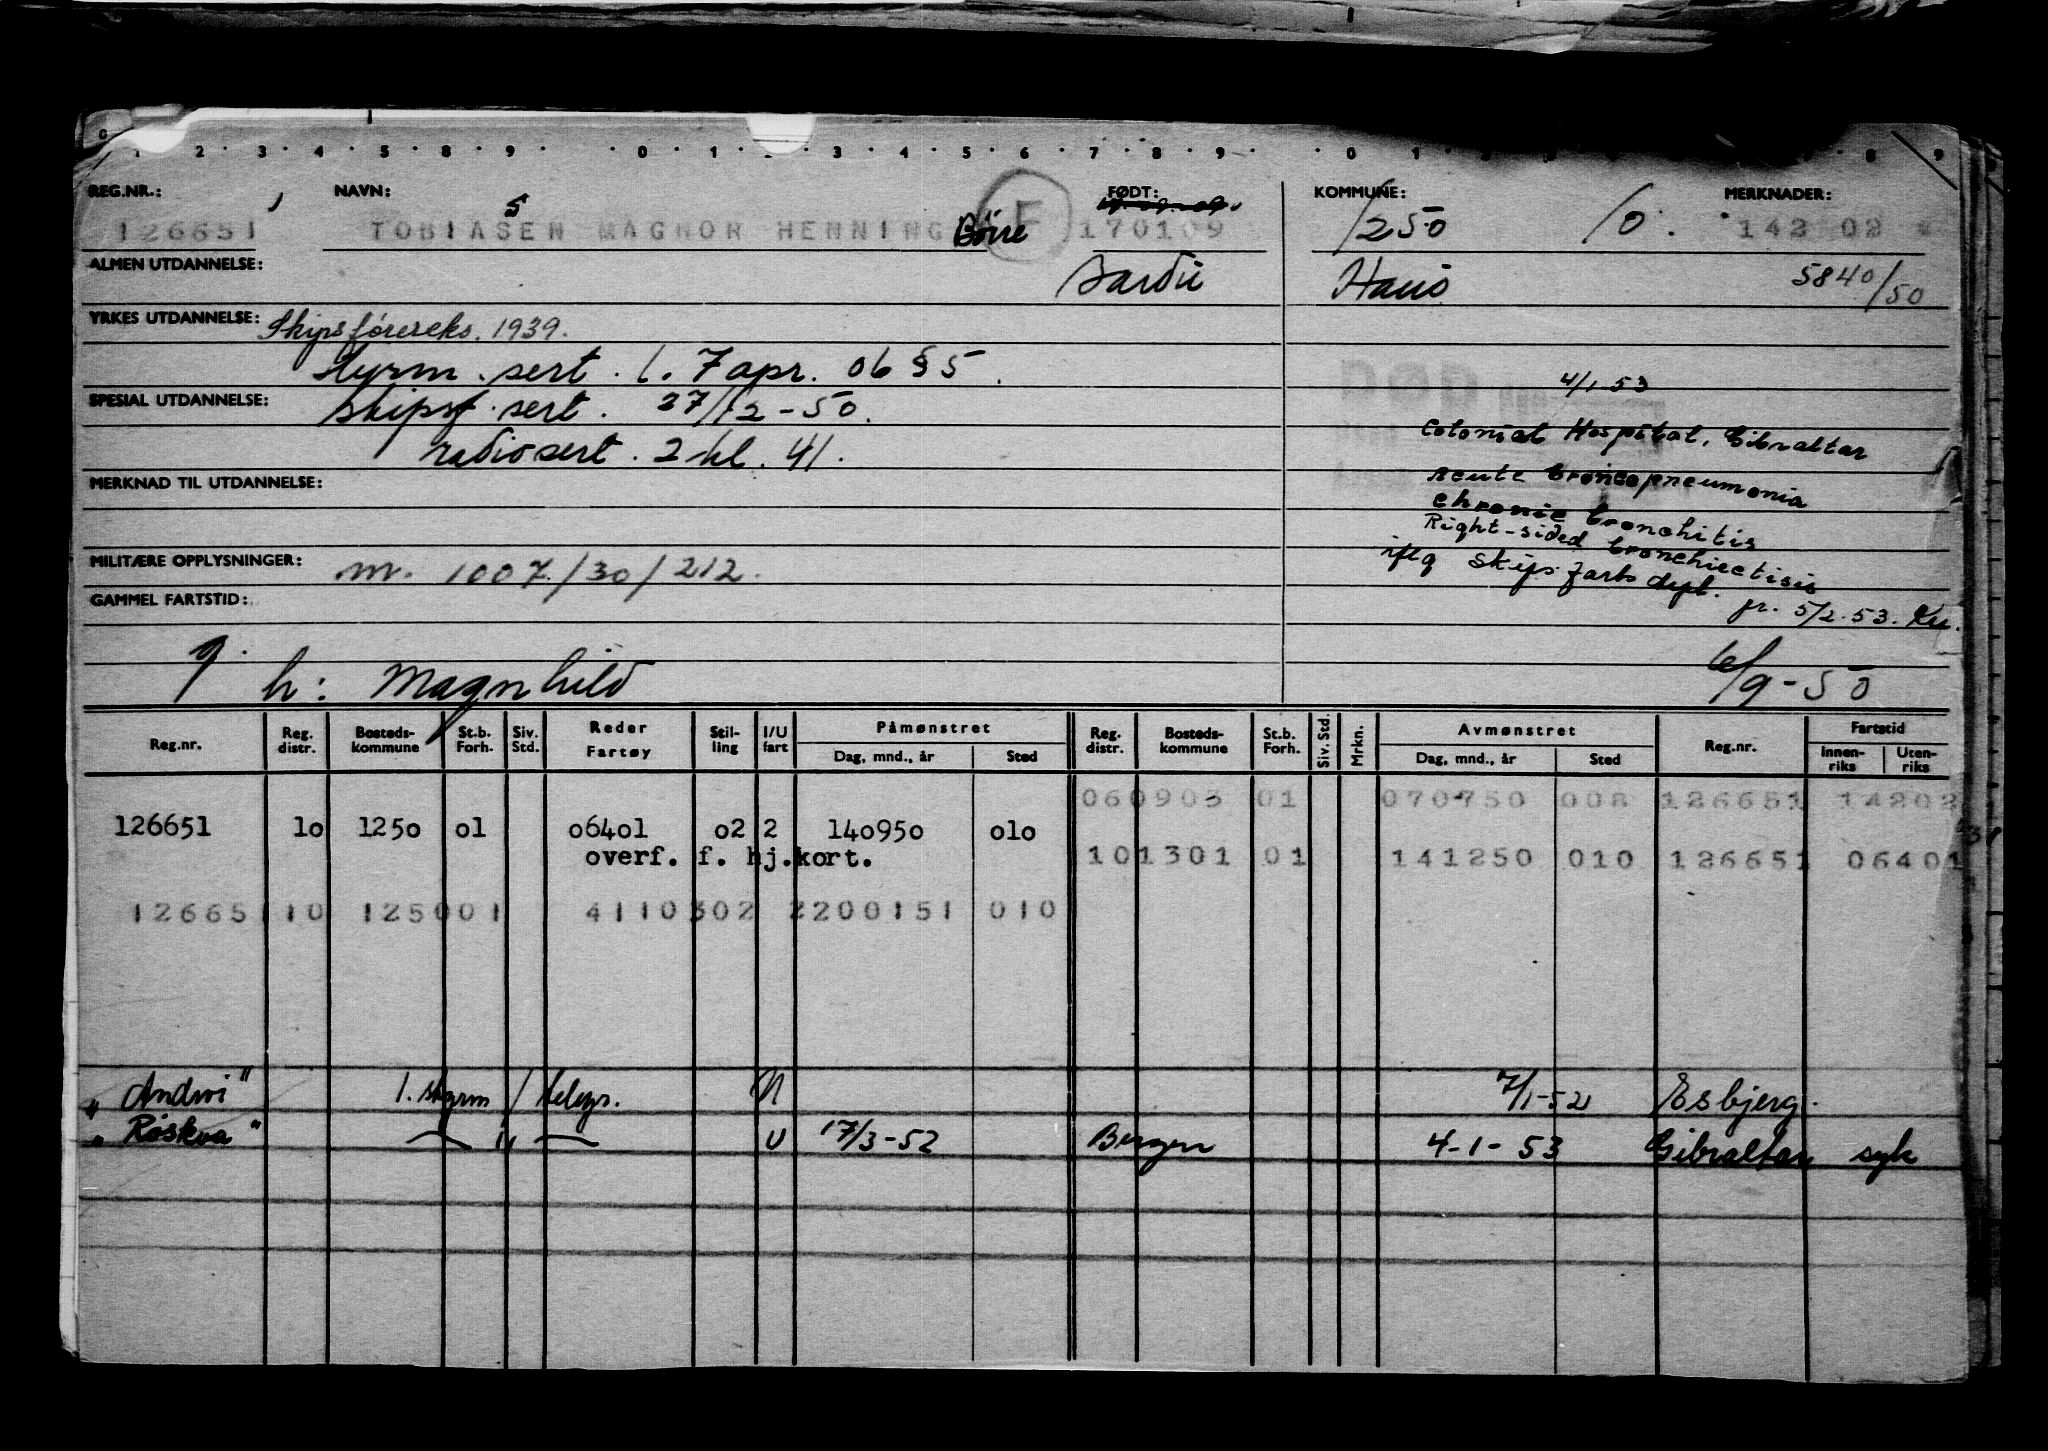 0 1 2 3 4 5 8 9 0 1 2 3 4 5 6 7 8 9 0 1 8 9
REG.NR.: NAVN: FØDT: KOMMUNE: MERKNADER:
126651 TOBIASEN MAGNOR HENNING Börre F 170109 1250 10. 142 02
s
ALMEN UTDANNELSE: Haus 5840/50
YRKES UTDANNELSE: Skipsførereks. 1939.
Styrm. sert. l. 7 apr. 06 § 5.
DØD 4/1-53
SPESIAL UTDANNELSE: skipsf. sert. 27/12-50.
Colonial Hospital, Gibraltar
radiosert. 2 kl. 41.
acute broncopneumonia
MERKNAD TIL UTDANNELSE:
chronic bronchitis
Right-sided bronchiectisis
MILITÆRE OPPLYSNINGER: m. 1007/30/212.
iflg skipsfartsdept. fr. 5/2.53. Ku.
GAMMEL FARTSTID:
g.
h: Magnhild 6/9-50
Reg.nr. Reg. distr. Bosteds- kommune St.b. Forh. Siv. Std. Reder Fartøy Stil- ling I/U fart Påmønstret Dag, mnd., år Sted Reg. distr. Bosteds- kommune St.b. Forh. Siv. Std. Mrkn. Avmønstret Dag, mnd., år Sted Reg.nr. Fartstid Innen- riks Uten- riks
060903 01 070750 008 126651 14202
126651 10 1250 01 06401 02 2 140950 010
overf. f. hj.kort. 101301 01 141250 010 126651 06401
126651 10 125001 4110302 2200151 010
"Andwi" 1. styrm / telegr. N 7/1-52 Esbjerg.
"Røskva" — " — U 17/3-52 Bergen 4-1-53 Gibraltar syk